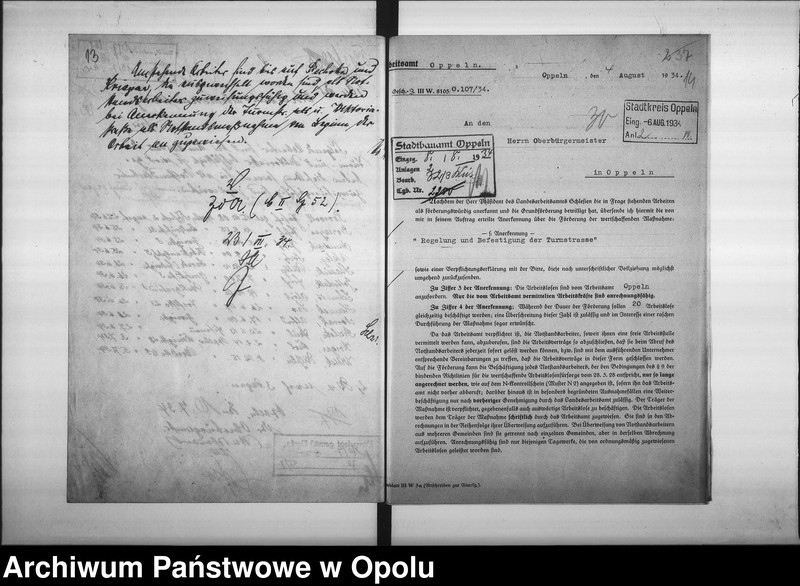 13
Umstehende Arbeiter sind bis auf
und
worden sind, als Not
standsarbeiter zuweisungsfähig und werden
bei Anerkennung der Turnstr. als u. Viktoria-
straße als Notstandsmaßnahme von Beginn der
Arbeit an zugewiesen.
zdA (B II G 52).
237
beitsamt Oppeln.
Oppeln, den 4 August 1934.
Gesch.-Z. III W 5105 0.107/34.
Stadtkreis Oppeln
Eing. -6. AUG. 1934
Anl. 2
An den
Herrn Oberbürgermeister
in Oppeln
Stadtbauamt Oppeln
Eingeg. 8. / 8. 1934
Anlagen 2
Bearb.
Tgb. Nr.
Nachdem der Herr Präsident des Landesarbeitsamtes Schlesien die in Frage stehenden Arbeiten
als förderungswürdig anerkannt und die Grundförderung bewilligt hat, übersende ich hiermit die von
mir in seinem Auftrag erteilte Anerkennung über die Förderung der wertschaffenden Maßnahme:
— s. Anerkennung —
" Regelung und Befestigung der Turnstrasse"
sowie einer Verpflichtungserklärung mit der Bitte, diese nach unterschriftlicher Vollziehung möglichst
umgehend zurückzusenden.
Zu Ziffer 3 der Anerkennung: Die Arbeitslosen sind vom Arbeitsamt Oppeln
anzufordern. Nur die vom Arbeitsamt vermittelten Arbeitskräfte sind anrechnungsfähig.
Zu Ziffer 4 der Anerkennung: Während der Dauer der Förderung sollen 20 Arbeitslose
gleichzeitig beschäftigt werden; eine Überschreitung dieser Zahl ist zulässig und im Interesse einer raschen
Durchführung der Maßnahme sogar erwünscht.
Da das Arbeitsamt verpflichtet ist, die Notstandsarbeiter, soweit ihnen eine freie Arbeitsstelle
vermittelt werden kann, abzuberufen, sind die Arbeitsverträge so abzuschließen, daß sie beim Abruf des
Notstandsarbeiters jederzeit sofort gelöst werden können, bzw. sind mit dem ausführenden Unternehmer
entsprechende Vereinbarungen zu treffen, daß die Arbeitsverträge in dieser Form geschlossen werden.
Auf die Förderung kann die Beschäftigung jedes Notstandsarbeiters, der den Bedingungen des § 9 der
bindenden Richtlinien für die wertschaffende Arbeitslosenfürsorge vom 28. 3. 28 entspricht, nur so lange
angerechnet werden, wie auf dem N-Kontrollschein (Muster N 2) angegeben ist, sofern ihn das Arbeits-
amt nicht vorher abberuft; darüber hinaus ist in besonders begründeten Ausnahmefällen eine Weiter-
beschäftigung nur nach vorheriger Genehmigung durch das Landesarbeitsamt zulässig. Der Träger der
Maßnahme ist verpflichtet, gegebenenfalls auch auswärtige Arbeitslose zu beschäftigen. Die Arbeitslosen
werden dem Träger der Maßnahme schriftlich durch das Arbeitsamt zugewiesen. Sie sind in den Ab-
rechnungen in der Reihenfolge ihrer Überweisung aufzuführen. Bei Überweisung von Notstandsarbeitern
aus mehreren Gemeinden sind sie getrennt nach einzelnen Gemeinden, aber in derselben Abrechnung
aufzuführen. Anrechnungsfähig sind nur diejenigen Tagewerke, die von ordnungsmäßig zugewiesenen
Arbeitslosen geleistet worden sind.
III W 5a (Beschreiben zur Anerkg.).
Archiwum Państwowe w Opolu